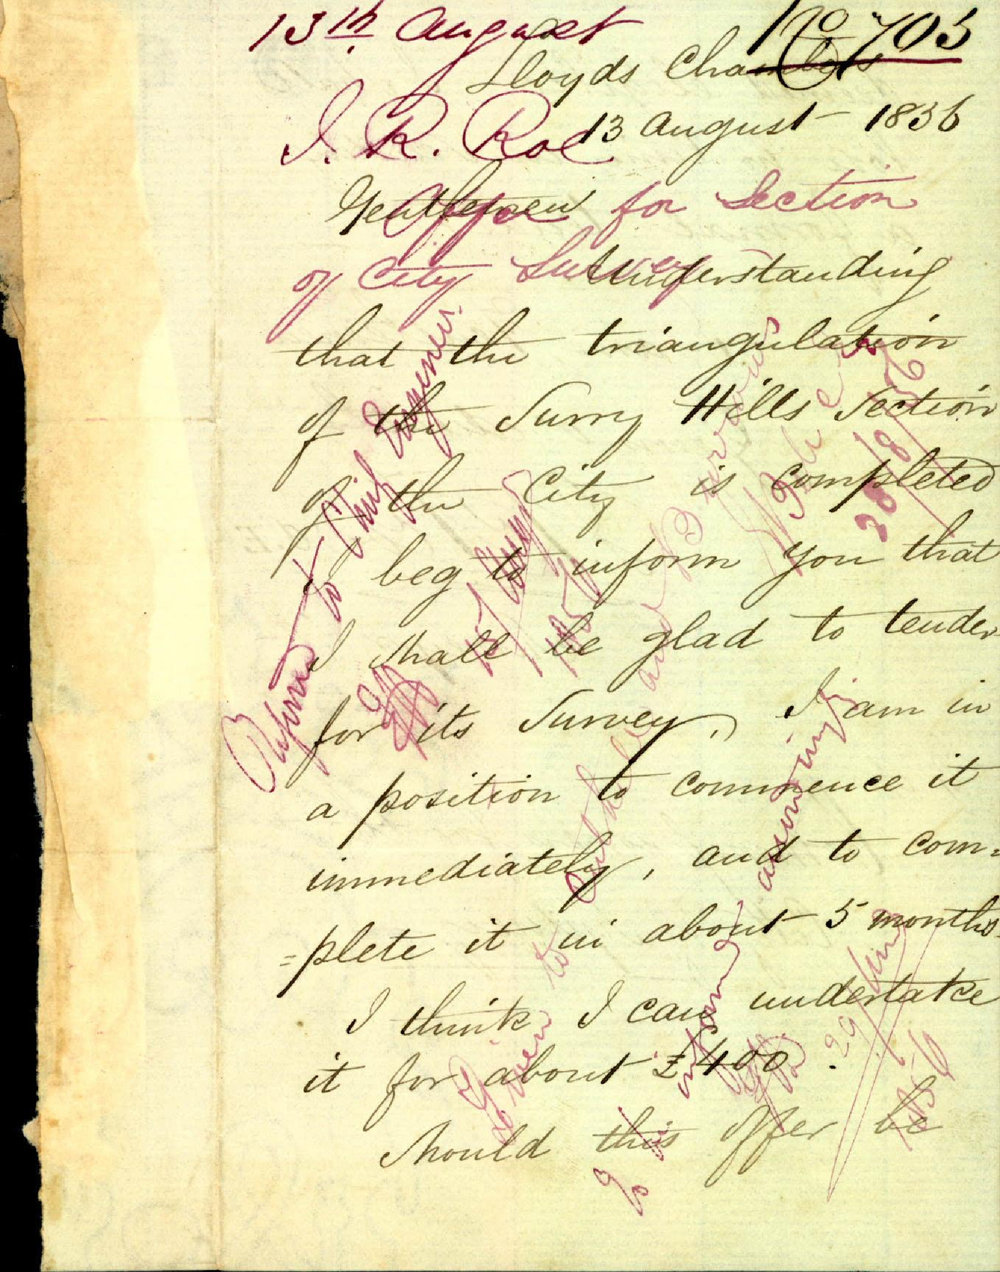 13th August
No 703
Lloyds Chambers
J. R. Roe
13 August 1856
Gentlemen
Offer for Section
of City Survey
Understanding
that the triangulation
of the Surry Hills Section
of the City is completed
I beg to inform you that
I shall be glad to tender
for its Survey, I am in
a position to commence it
immediately, and to com=
=plete it in about 5 months.
I think I can undertake
it for about £400.
Should this offer be
Referred to Chief Engineer
15/Augt
1856
Given to
and
28/8/56
To be
answering
29/
1856